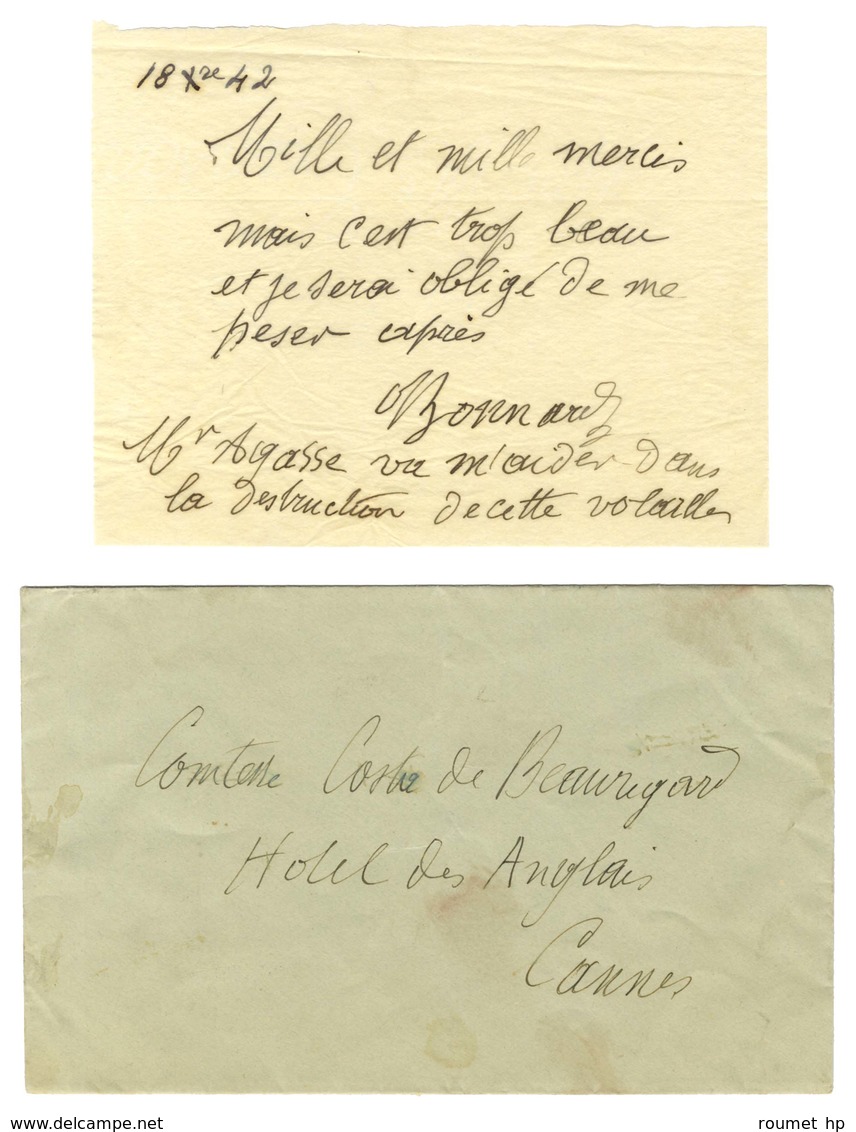 18 Xre 42
Mille et mille mercis
mais c'est trop beau
et je serai obligé de me
peser après
Bonnard
Mr Agasse va m'aider dans
la destruction de cette volaille
Comtesse Costa de Beauregard
Hotel des Anglais
Cannes
roumet hp